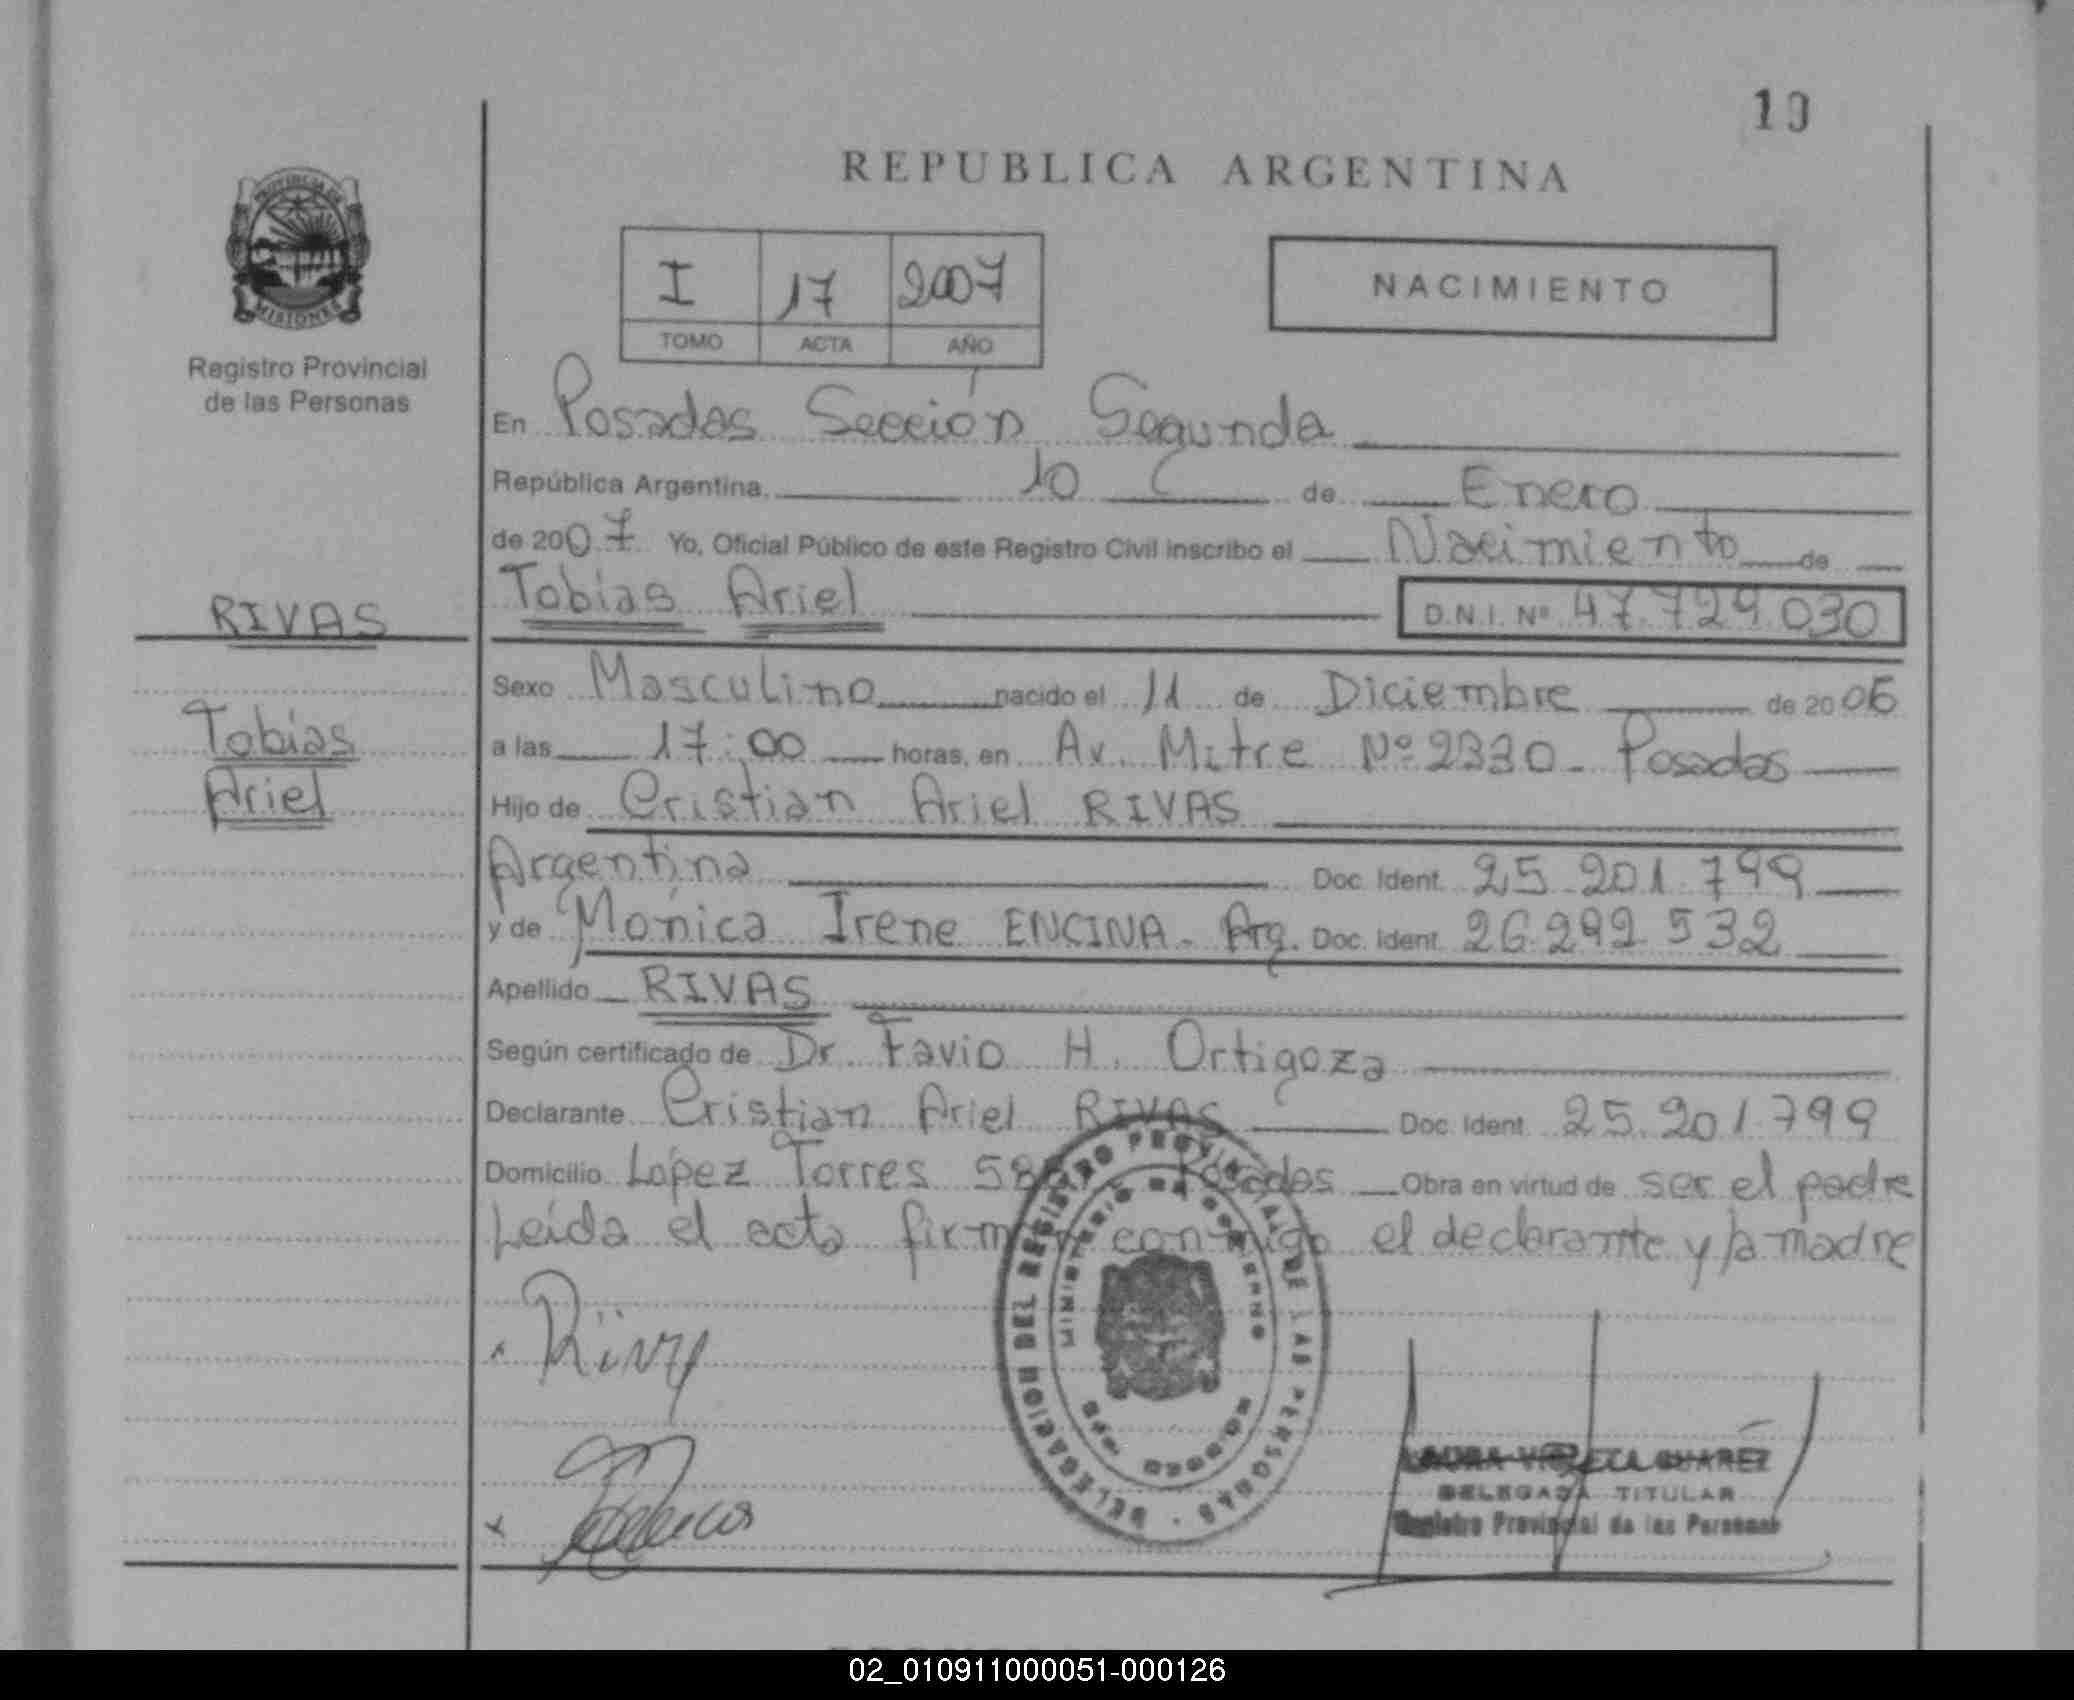 19
REPUBLICA ARGENTINA
PROVINCIA DE
MISIONES
Registro Provincial
de las Personas
I 17 2007
TOMO ACTA AÑO
NACIMIENTO
En Posadas Sección Segunda
República Argentina, 10 de Enero
de 2007 Yo, Oficial Público de este Registro Civil inscribo el Nacimiento de
Tobias Ariel D.N.I. Nº 47.729.030
RIVAS
Tobias
Ariel
Sexo Masculino nacido el 11 de Diciembre de 2006
a las 17:00 horas, en Av. Mitre Nº 2330- Posadas
Hijo de Cristian Ariel RIVAS
Argentina Doc. Ident. 25.201.799
y de Mónica Irene ENCINA- Arg. Doc. Ident. 26.292.532
Apellido RIVAS
Según certificado de Dr. Favio H. Ortigoza
Declarante Cristian Ariel RIVAS Doc. Ident. 25.201.799
Domicilio López Torres Posadas Obra en virtud de ser el padre
Leída el acta firman conmigo el declarante y la madre
DELEGACION DEL REGISTRO PROVINCIAL DE LAS PERSONAS
MINISTERIO DE GOBIERNO
LAURA SUAREZ
DELEGADA TITULAR
Registro Provincial de las Personas
02_010911000051-000126